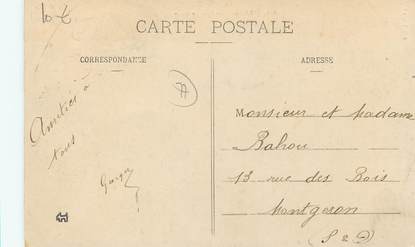 CARTE POSTALE
CORRESPONDANCE
ADRESSE
Amitiés à
tous
Monsieur et Madame
Bahou
13 rue des Bois
Montgeron
(S & O)